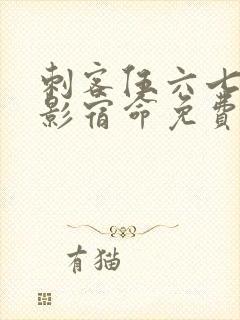 刺客伍六七
影宿命免费
有猫